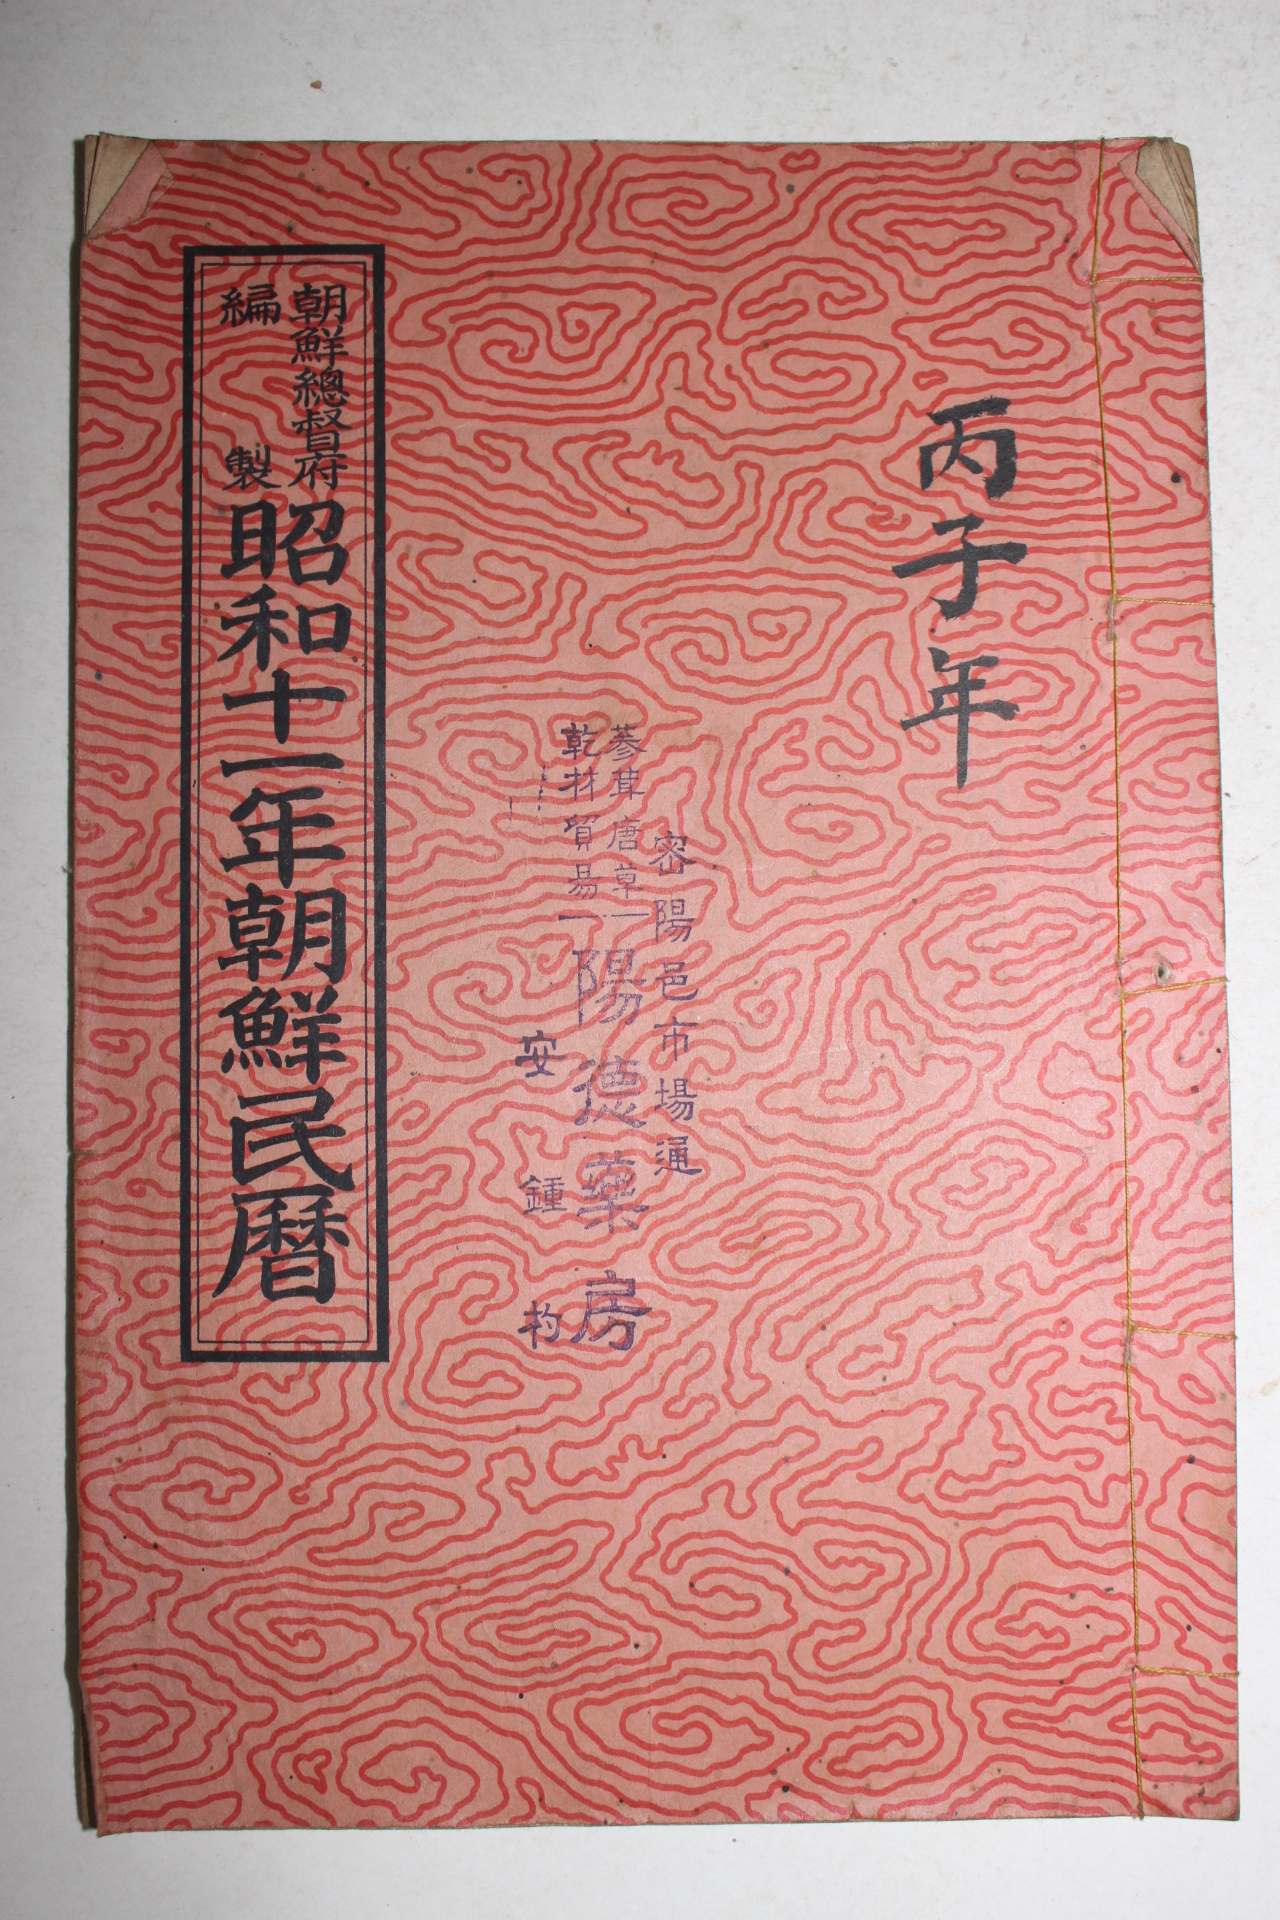 丙子年
密陽邑市場通
蔘茸唐草
乾材貿易
陽德藥房
安鍾杓
朝鮮總督府
編製
昭和十一年朝鮮民曆